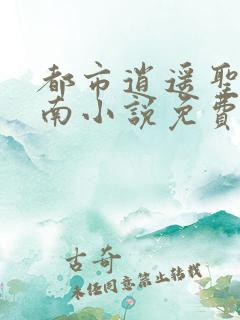 都市逍遥聖
南小説免費
古奇
未经同意禁止转载